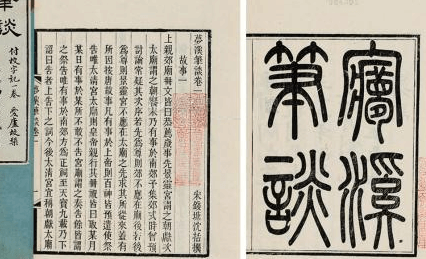 夢溪
筆談
夢溪筆談卷一
宋錢塘沈括撰
故事一
上親郊廟冊文皆曰恭薦歲事先景靈宮謂之朝獻次
太廟謂之朝饗末乃有事於南郊予集郊式時曾預
討論常疑其次序若先為尊則郊不應在廟後若後
為尊則景靈宮不應在太廟之先求其所從來蓋有
所因按唐故事凡有事於上帝則百神皆預遣使祭
告唯太清宮太廟則皇帝親行其冊祝皆曰取某月
某日有事於某所不敢不告宮廟謂之奏告餘皆謂
之祭告唯有事於南郊方為正祠至天寶九載乃下
詔曰告者上告下之詞今後太清宮宜稱朝獻太廟
夢溪筆談卷一
筆談
付校字記一卷